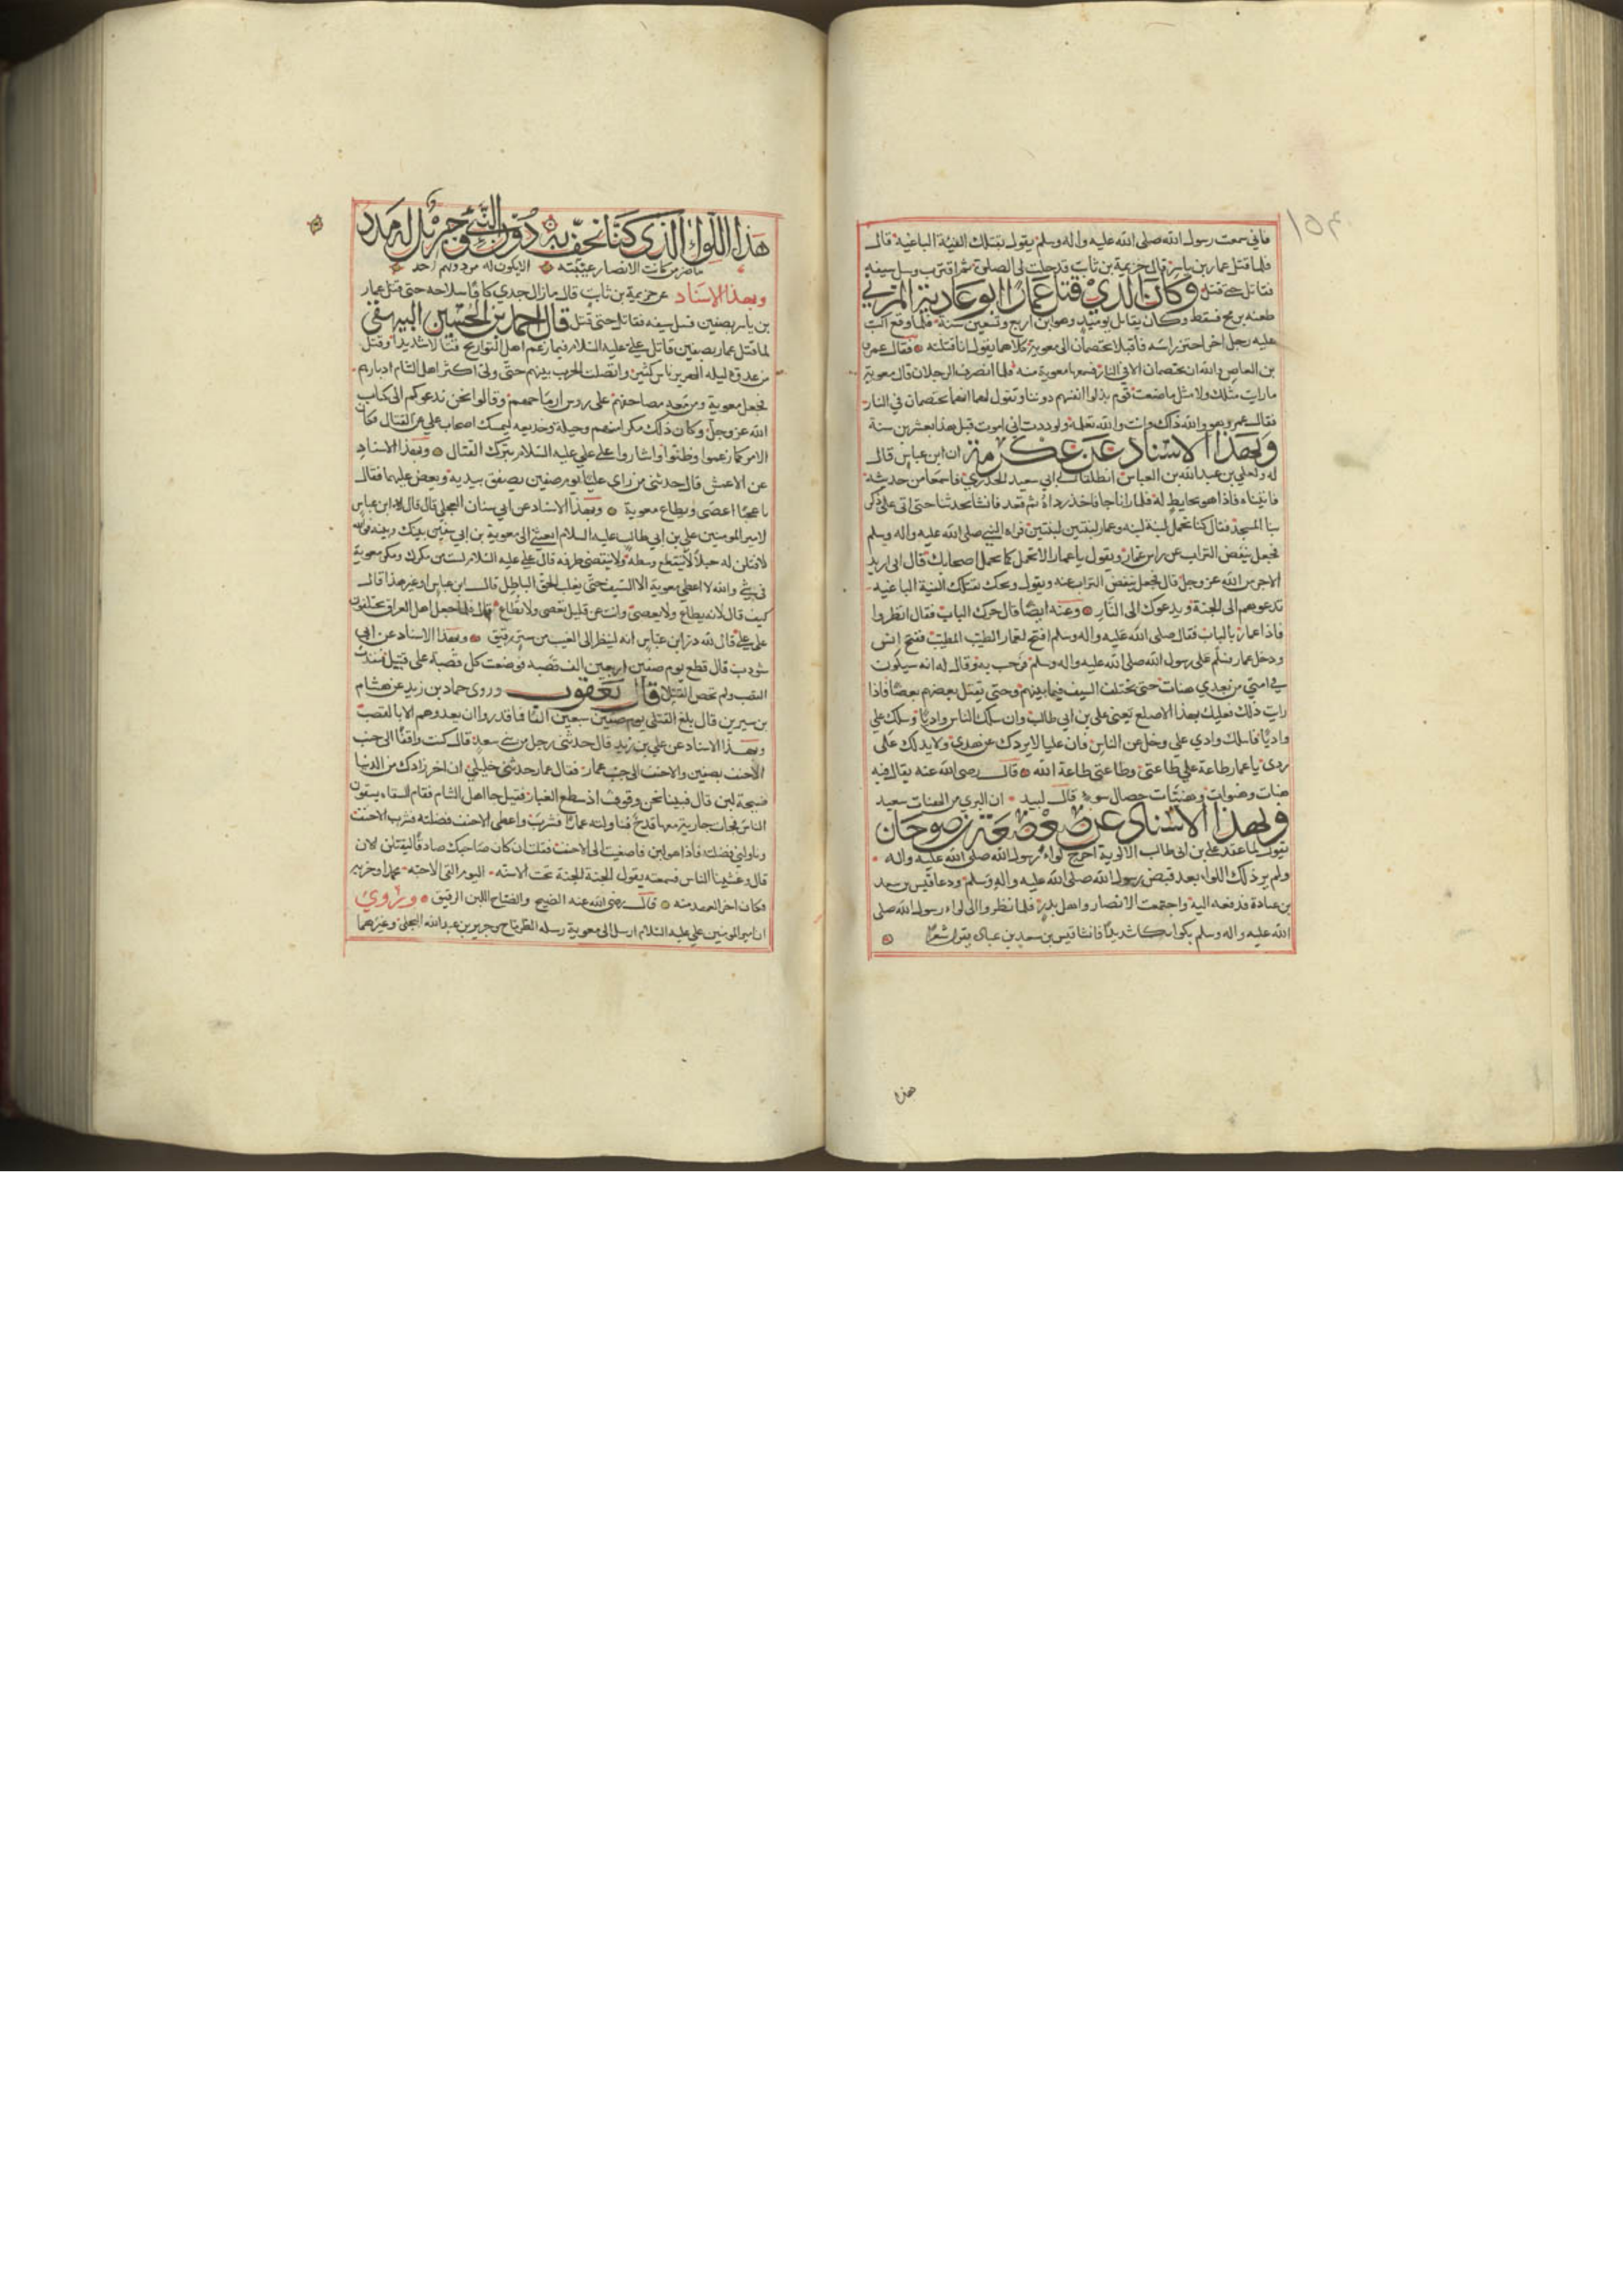 ١٥٤
فاني سمعت رسول الله صلى الله عليه واله وسلم يقول تقتلك الفئة الباغية قال
فلما قتل عمار بن ياسر قال خزيمة بن ثابت قد حلت لي الصلوة ثم اقترب وسل سيفه
فقاتل حتى قتل وكان الذي قتل عمارا ابو عادية المزني
طعنه برمح فسقط وكان يقاتل يوميذ وهو ابن اربع وتسعين سنة فلما وقع اكب
عليه رجل اخر احتز راسه فاقبلا يختصمان الى معوية كلاهما يقول انا قتلته فقال عمرو
بن العاص والله ان يختصمان الا في النار فسمعها معوية منه فلما انصرف الرجلان قال معوية
ما رايت مثلك ولا مثل ما صنعت قوم بذلوا انفسهم دوننا وتقول لهما انكما تختصمان في النار
فقال عمرو هو والله ذاك وانت والله تعلمه ولوددت اني اموت قبل هذا بعشرين سنة
وبهذا الاسناد عن عكرمة ان ابن عباس قال
له ولعلي بن عبد الله بن العباس انطلقا الى ابي سعيد الخدري فاسمعا من حديثه
فاتيناه فاذا هو بحايط له فلما رانا جا فاخذ رداه ثم قعد فانشا يحدثنا حتى اتى على ذكر
بنا المسجد فقال كنا نحمل لبنة لبنة وعمار لبنتين لبنتين فراه النبي صلى الله عليه واله وسلم
فجعل ينفض التراب عن راس عمار ويقول يا عمار الا تحمل كما يحمل اصحابك قال اني اريد
الاجر من الله عز وجل قال فجعل ينفض التراب عنه ويقول ويحك تقتلك الفئة الباغية
تدعوهم الى الجنة ويدعوك الى النار وعنه ايضا قال حرك الباب فقال انظروا
فاذا عمار بالباب فقال صلى الله عليه واله وسلم افتح لعمار الطيب المطيب ففتح انس
ودخل عمار فسلم على رسول الله صلى الله عليه واله وسلم فرحب به وقال له انه سيكون
في امتي من بعدي هنات حتى يختلف السيف فيما بينهم وحتى يقتل بعضهم بعضا فاذا
رايت ذلك فعليك بهذا الاصلع يعني علي بن ابي طالب وان سلك الناس واديا وسلك علي
واديا فاسلك وادي علي وخل عن الناس فان عليا لا يردك عن هدى ولا يدلك على
ردى يا عمار طاعة علي طاعتي وطاعتي طاعة الله قال رضى الله عنه يقال فيه
هنات وهنوات وهنيات خصال سوء قال لبيد ان البري من الهنات سعيد
وبهذا الاسناد عن صعصعة بن صوحان
يقول لما عقد علي بن ابي طالب الالوية اخرج لواء رسول الله صلى الله عليه واله
ولم ير ذلك اللواء بعد قبض رسول الله صلى الله عليه واله وسلم ودعا قيس بن سعد
بن عبادة فدفعه اليه واجتمعت الانصار واهل بدر فلما نظروا الى لواء رسول الله صلى
الله عليه واله وسلم بكوا بكاء شديدا فانشا قيس بن سعد بن عبادة يقول شعرا
هذا
هذا اللواء الذي كنا نحف به دون النبي وجبرئل له مدد
ما ضر من كانت الانصار عيبته الا يكون له من دونهم احد
وبهذا الاسناد عن خزيمة بن ثابت قال ما زال جدي كافا سلاحه حتى قتل عمار
بن ياسر بصفين فسل سيفه فقاتل حتى قتل قال احمد بن الحسين البيهقي
لما قتل عمار بصفين قاتل علي عليه السلام فيما زعم اهل التواريخ قتالا شديدا وقتل
من غدوة ليلة الهرير ناس كثير واتصلت الحرب بينهم حتى ولى اكثر اهل الشام ادبارهم
فجعل معوية ومن معه مصاحفهم على روس ارماحهم وقالوا نحن ندعوكم الى كتاب
الله عز وجل وكان ذلك مكرا منهم وحيلة وخديعة ليمسك اصحاب علي عن القتال فكان
الامر كما زعموا وظنوا واشاروا على علي عليه السلام بترك القتال وبهذا الاسناد
عن الاعمش قال حدثني من راى عليا يوم صفين يصفق بيديه ويعض عليهما فقال
يا عجبا اعصى ويطاع معوية وبهذا الاسناد عن ابي سنان العجلي قال قال ابن عباس
لامير المومنين علي بن ابي طالب عليه السلام ابعثني الى معوية بن ابي سفين بينك وبينه فوالله
لافتلن له حبلا لا ينقطع وسطه ولا ينتقض طرفه قال علي عليه السلام لست من مكرك ومكر معوية
في شي والله لا اعطي معوية الا السيف حتى يغلب الحق الباطل قال ابن عباس او غير هذا قال
كيف قال لانه يطاع ولا يعصى وانت عن قليل تعصى ولا تطاع قال فلما جعل اهل العراق يختلفون
على علي قال لله در ابن عباس انه لينظر الى الغيب من ستر رقيق وبهذا الاسناد عن ابي
شودب قال قطع يوم صفين اربعين الف قصبة فوضعت كل قصبة على قتيل فنفدت
القصب ولم تحص القتلى قال يعقوب وروى حماد بن زيد عن هشام
بن سيرين قال بلغ القتلى يوم صفين سبعين الفا فما قدروا ان يعدوهم الا بالقصب
وبهذا الاسناد عن علي بن زيد قال حدثني رجل من بني سعد قال كنت واقفا الى جنب
الاحنف بصفين والاحنف الى جنب عمار فقال عمار حدثني خليلي ان اخر زادك من الدنيا
ضيحة لبن قال فبينا نحن وقوف اذ سطع الغبار فقيل جا اهل الشام فقام السقاء يسقون
الناس فجات جارية معها قدح فناولته عمارا فشرب واعطى الاحنف فضلته فشرب الاحنف
وناولني فضله فاذا هو لبن فاصغيت الى الاحنف فقلت ان كان صاحبك صادقا ليقتلن الان
قال وغشينا الناس فسمعته يقول الجنة الجنة تحت الاسنة اليوم القى الاحبة محمدا وحزبه
فكان اخر العهد منه قال رضى الله عنه الضيح والضياح اللبن الرقيق وروي
ان امير المومنين علي عليه السلام ارسل الى معوية رسله الطرماح وجرير بن عبد الله البجلي وغيرهما